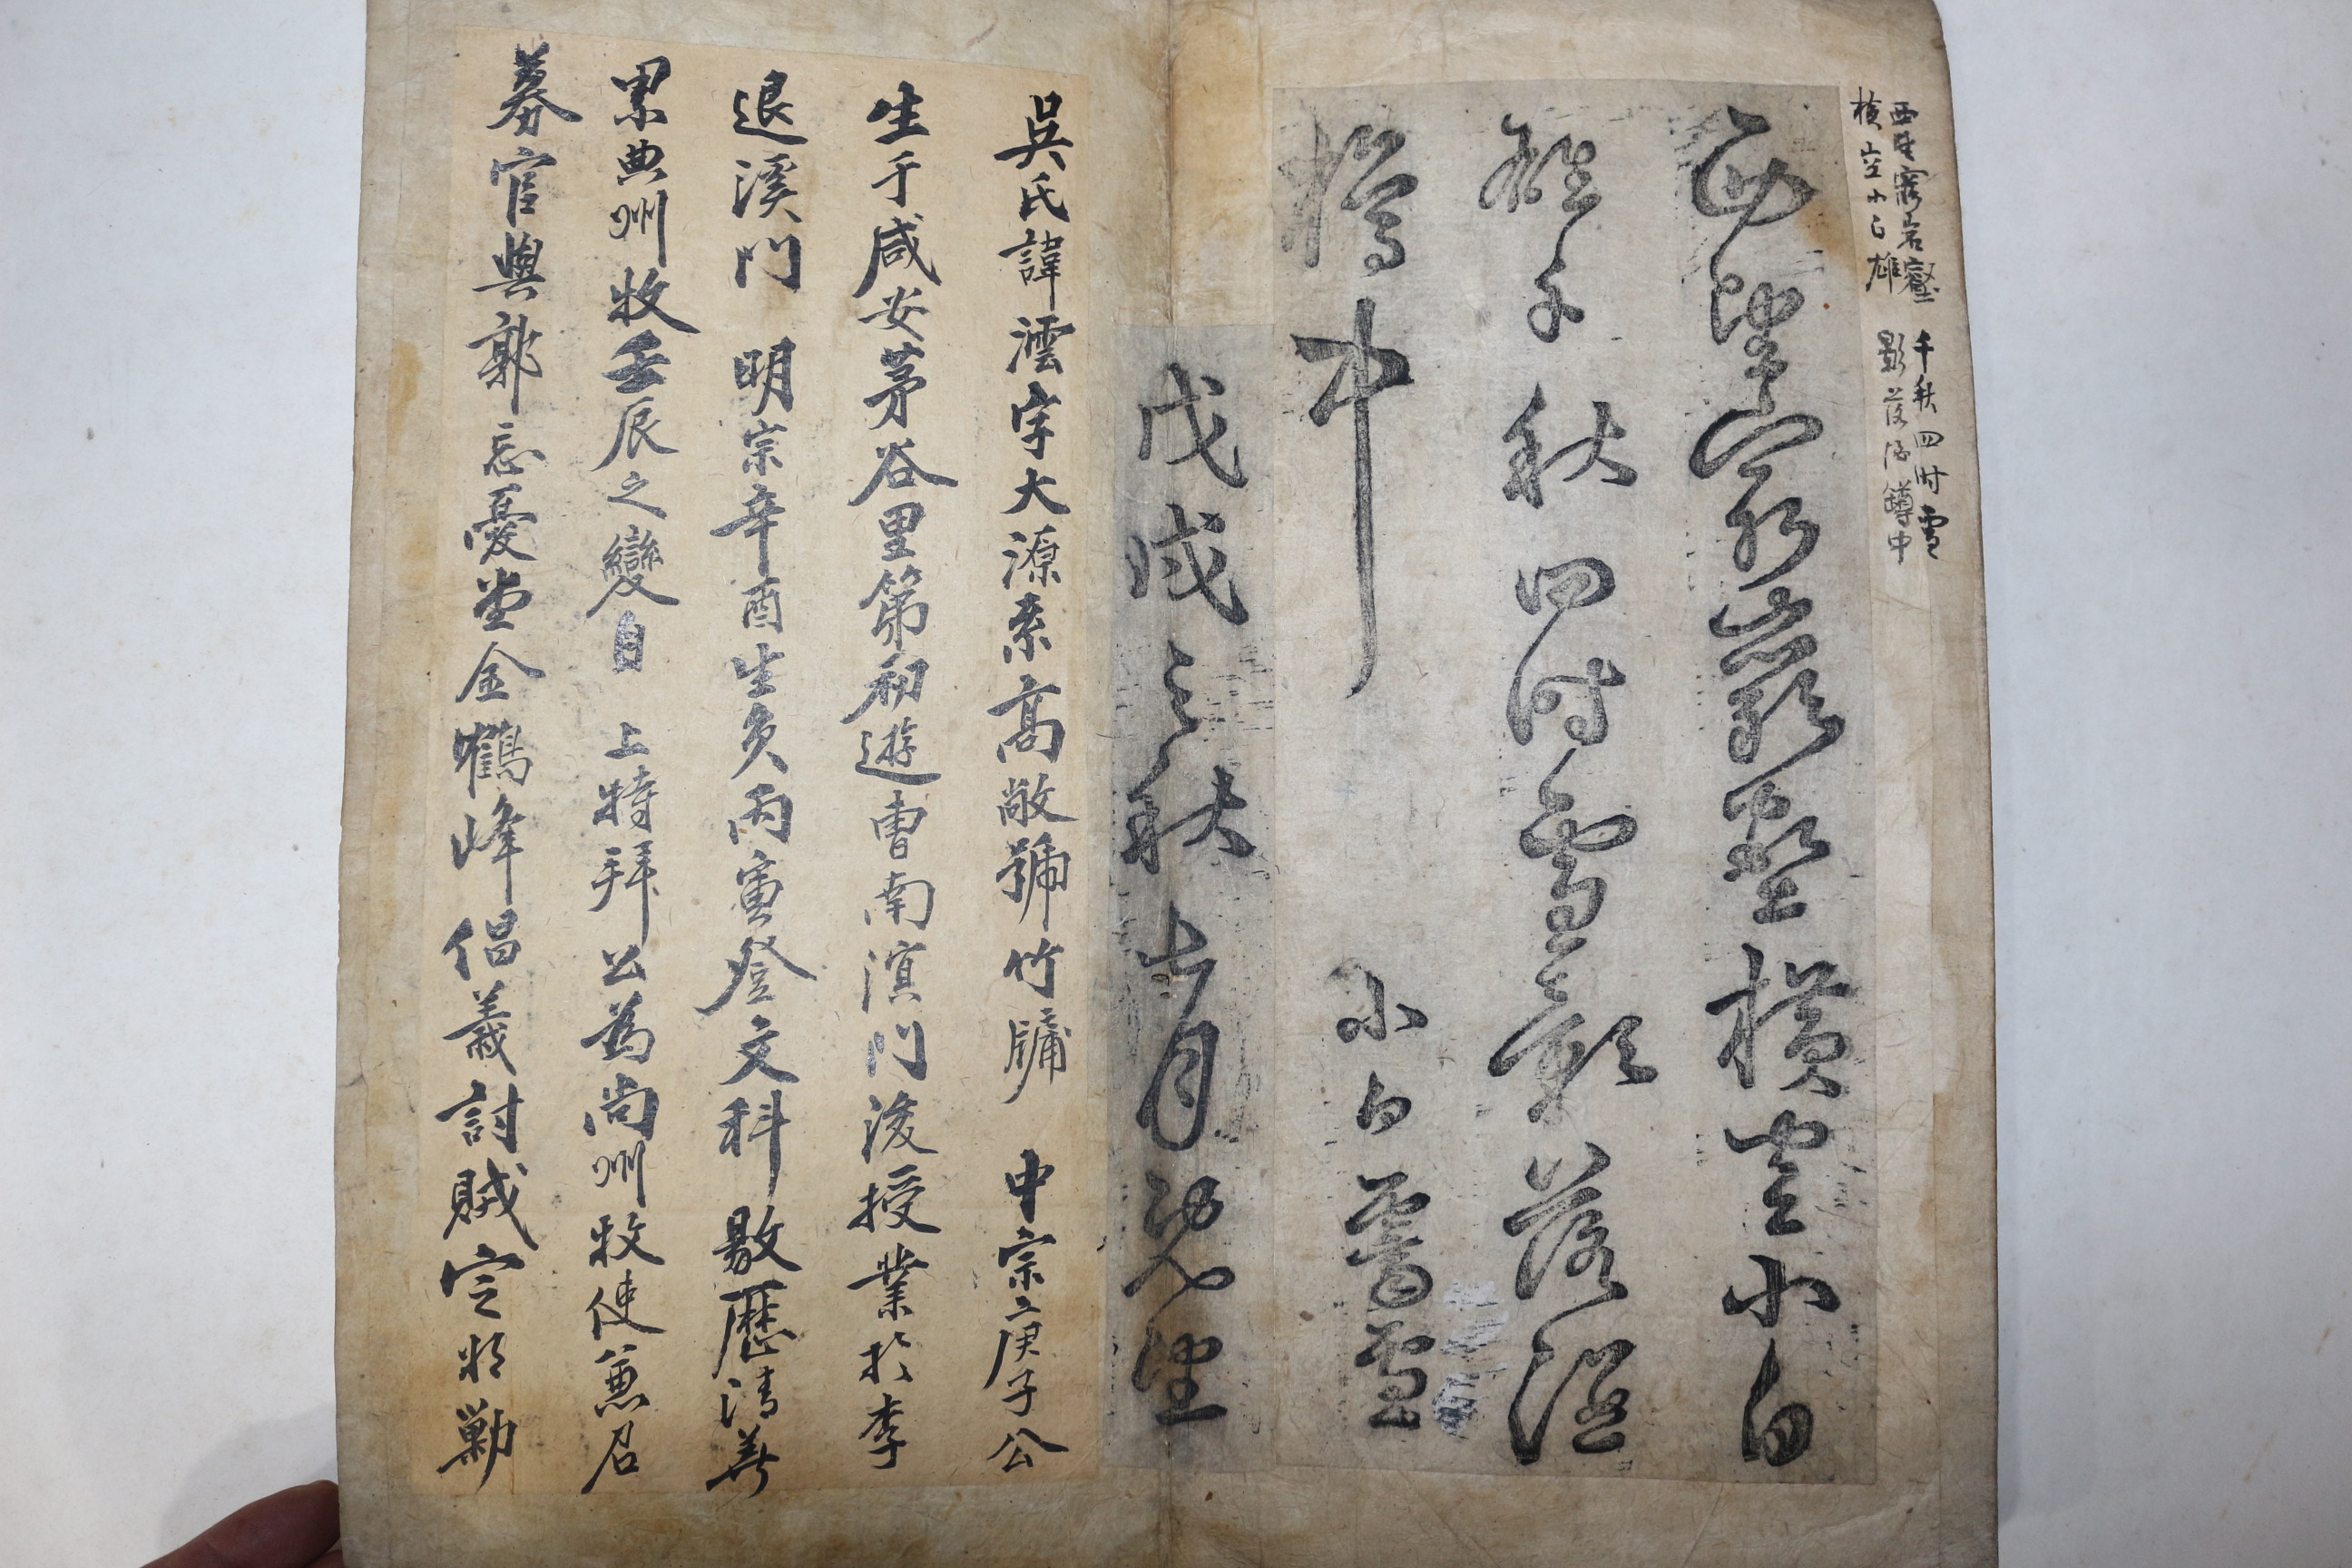 西望窮岩壑
橫空小白雄
千秋四時雪
影落酒罇中
西望窮巖壑橫空小白
雄千秋四時雪影落酒
樽中
小白霽雪
戊戌之秋七月
吳氏諱澐字大源系高敞號竹牖 中宗庚子公
生于咸安茅谷里第初遊曺南溟門後授業於李
退溪門 明宗辛酉生員丙寅登文科敭歷清羙
累典州牧壬辰之變自 上特拜公為尚州牧使兼召
募官與郭忘憂堂金鶴峰倡義討賊定將勳